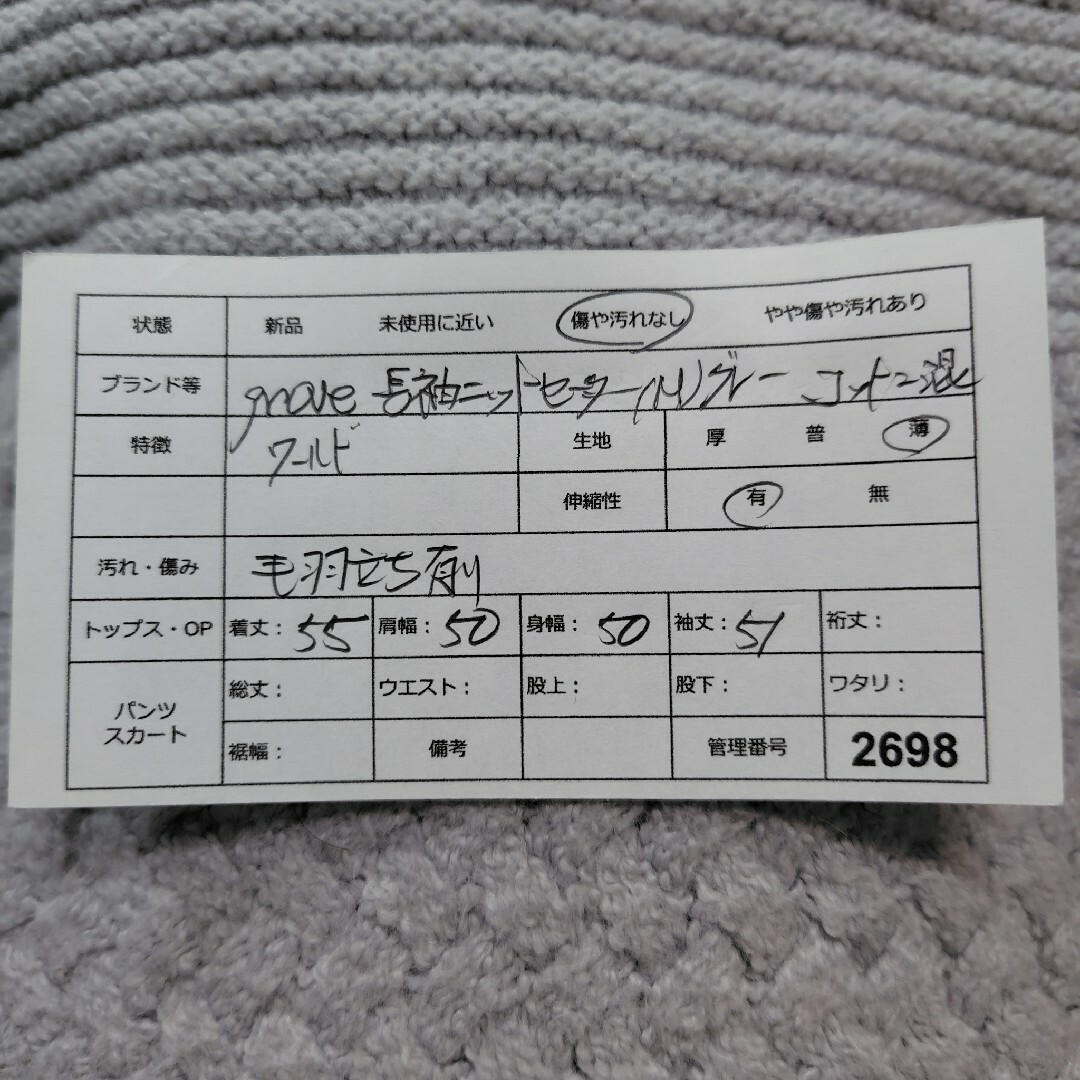 状態 新品 未使用に近い 傷や汚れなし やや傷や汚れあり
ブランド等 grove 長袖ニットセーター(M)グレー コットン混
特徴 ワールド 生地 厚 普 薄
伸縮性 有 無
汚れ・傷み 毛羽立ち有り
トップス・OP 着丈: 55 肩幅: 50 身幅: 50 袖丈: 51 裄丈:
パンツ スカート 総丈: ウエスト: 股上: 股下: ワタリ:
裾幅: 備考 管理番号 2698